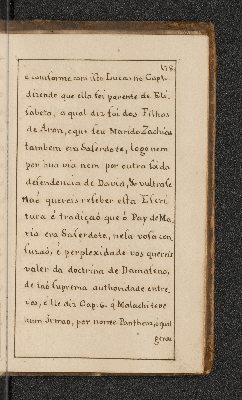 178.
e comforme com isto Lucas no Cap.1.
dizendo que ella foi parente de Eli
sabeta, a qual diz foi dos Filhos
de Aron, e que seu Marido Zachias
tambem era Saserdote, logo nem
por hua via nem por outra foi da
desendencia de David, &
naõ quereis reseber esta Escri
tura e tradiçaõ que o Pay de Ma
ria era Saserdote, nesta vosa con
fuzaõ, e perplexidade vos quereis
valer da doctrina de Damaseno,
de taõ suprema authoridade entre
vos, e lle diz Cap. 6. q Malachi teve
hum Irmaõ, por nome Panthera, o qual
gerou